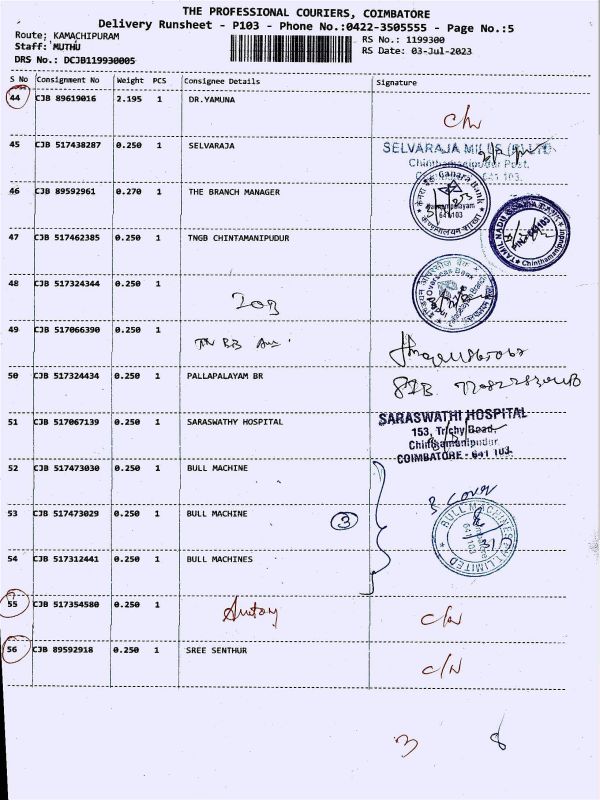 THE PROFESSIONAL COURIERS, COIMBATORE
Delivery Runsheet - P103 - Phone No.:0422-3505555 - Page No.:5
Route; KAMACHIPURAM
Staff: MUTHU
DRS No.: DCJB119930005
RS No.: 1199300
RS Date: 03-Jul-2023
S No Consignment No Weight PCS Consignee Details Signature
44 CJB 89619016 2.195 1 DR.YAMUNA
45 CJB 517438287 0.250 1 SELVARAJA
SELVARAJA MILLS (P) LTD
Chinthamanipudur Post,
641 103.
46 CJB 89592961 0.270 1 THE BRANCH MANAGER
Canara Bank
641 103
47 CJB 517462385 0.250 1 TNGB CHINTAMANIPUDUR
TAMIL NADU
Chinthamanipudur
48 CJB 517324344 0.250 1
IOB
Overseas Bank
49 CJB 517066390 0.250 1
50 CJB 517324434 0.250 1 PALLAPALAYAM BR
51 CJB 517067139 0.250 1 SARASWATHY HOSPITAL
SARASWATHI HOSPITAL
153, Trichy Road,
Chinthamanipudur
COIMBATORE - 641 103.
52 CJB 517473030 0.250 1 BULL MACHINE
3 cover
53 CJB 517473029 0.250 1 BULL MACHINE
3
BULL MACHINES
LIMITED
641 103
54 CJB 517312441 0.250 1 BULL MACHINES
55 CJB 517354580 0.250 1
C/N
56 CJB 89592918 0.250 1 SREE SENTHUR
C/N
3 8